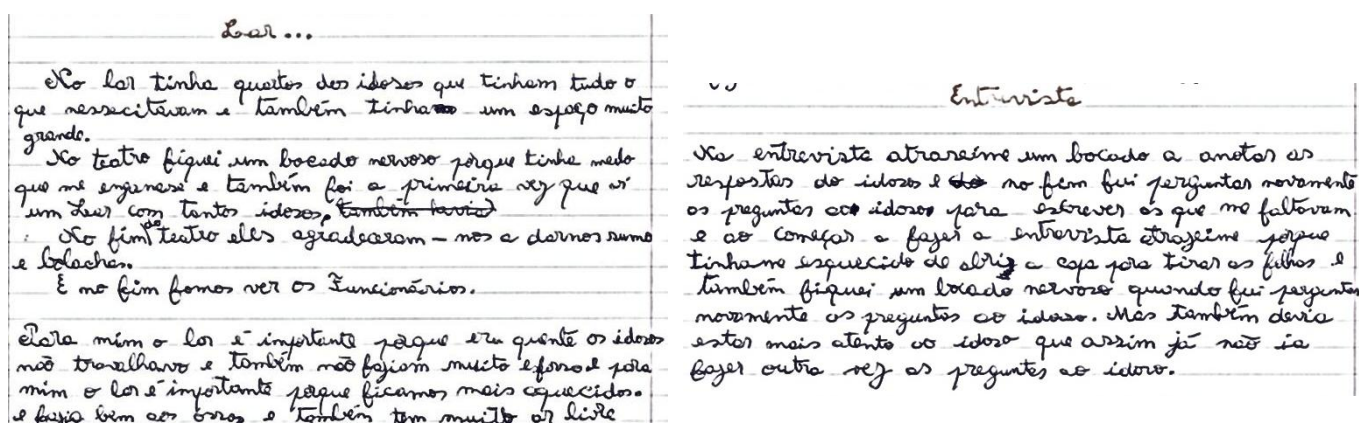 Lar...
No lar tinha quartos dos idosos que tinham tudo o
que nessecitavam e também tinha um espaço muito
grande.
No teatro fiquei um bocado nervoso porque tinha medo
que me enganase e também foi a primeira vez que vi
um Lar com tantos idosos, também havia
No fim do teatro eles agradeceram-nos a darnos sumo
e bolachas.
E no fim fomos ver os Funcionários.
Para mim o lar é importante porque era quente os idosos
não travalhavo e também não faziam muito esforso e para
mim o lar é importante porque ficamos mais aquecidos.
e fazia bem aos ossos e também tem muito ar livre
Entrevista
Na entrevista atraseime um bocado a anotar as
respostas do idosos e no fim fui perguntar novamente
as preguntas ao idoso para escrever as que me faltavam
e ao começar a fazer a entrevista atrazeime porque
tinhame esquecido de abrir a capa para tirar as filhas e
também fiquei um bocado nervoso quando fui perguntar
novamente as preguntas ao idoso. Mas também devia
estar mais atento ao idoso que assim já não ia
fazer outra vez as preguntas ao idoro.